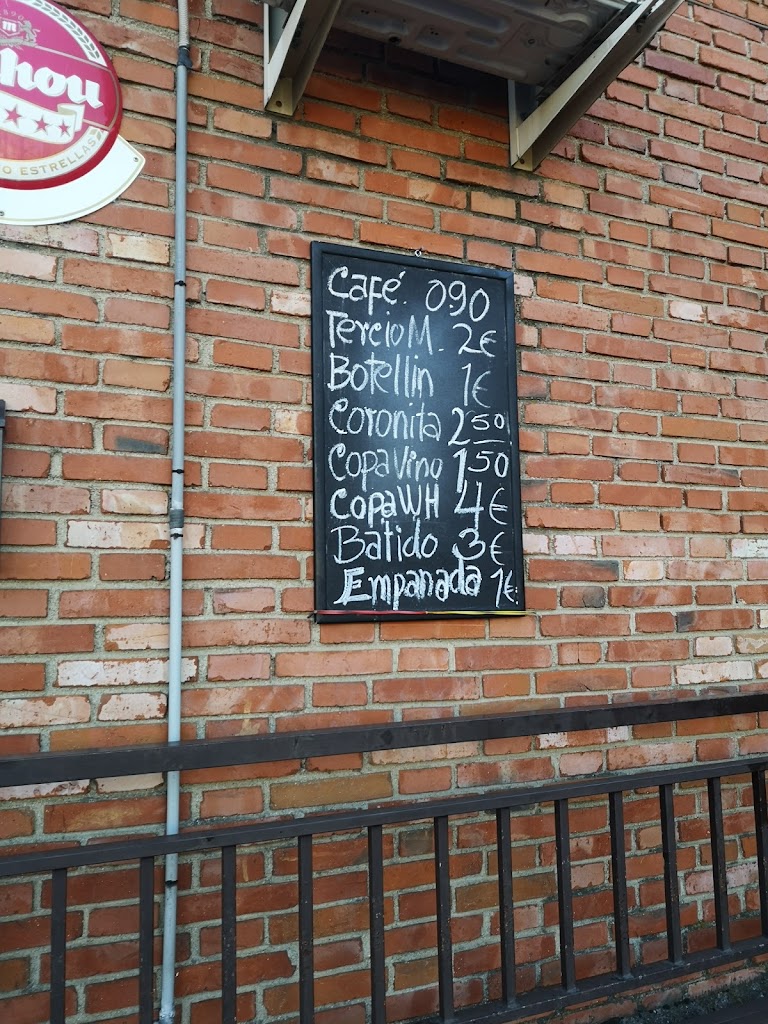 hou
O ESTRELLAS
Café. 090
Tercio M. 2€
Botellin 1€
Coronita 2 50
Copa Vino 1,50
Copa WH 4€
Batido 3€
Empanada 1€.